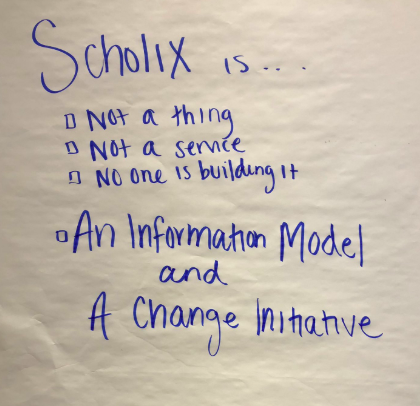 Scholix is...
□ Not a thing
□ Not a service
□ No one is building it
□ An Information Model
and
A Change Initiative